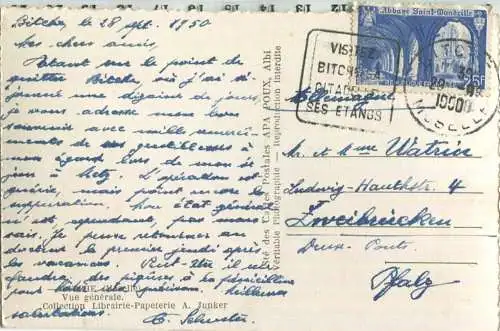 Bitche, le 28 sept. 1950
Mes chers amis,
Etant sur le point de
quitter Bitche où j'ai sé-
journé une dizaine de jours,
je vous adresse mon bon
souvenir avec mille remer-
ciements de vos gentillesses à
mon égard lors de mon sé-
jour à Metz. L'opération est
guérie, mais point encore la
suppuration. Mon état général
n'est, cependant, pas mau-
vais. Je peux retourner au
docteur le premier jeudi après
les vacances. Peut-être il me
faudra des piqûres à la pénicilline
pour la guérison. Meilleures
salutations.
E. Schuster
BITCHE (Moselle)
Vue générale.
Collection Librairie-Papeterie A. Junker
Sté des Cartes Postales APA POUX, Albi
Véritable Photographie - Reproduction interdite
VISITEZ
BITCHE
SA CITADELLE
SES ETANGS
Abbaye Saint-Wandrille
25F
MOSELLE
Mr. et Mme Watrin
Ludwig-Hauthstr. 4
Zweibrücken
Deux-Ponts
Pfalz